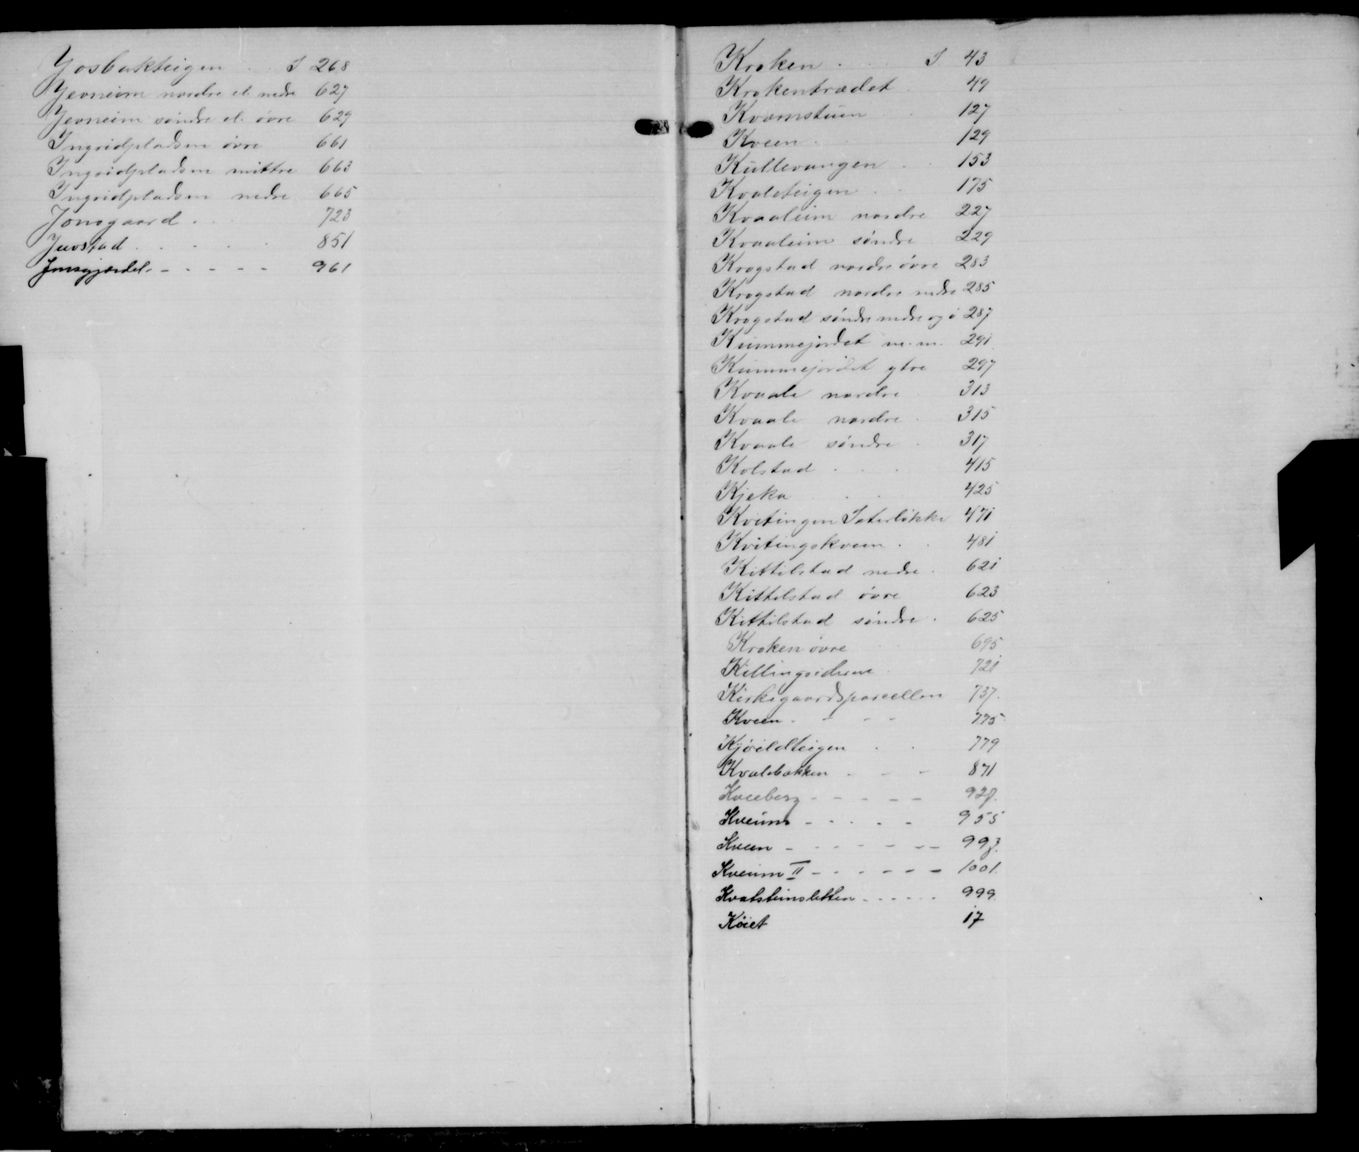 Josbakteigen . . I 268
Jevneim nordre el. nedre 627
Jevneim søndre el. øvre 629
Ingridpladsen øvre 661
Ingridpladsen mittre 663
Ingridpladsen nedre 665
Jonsgaard . . . 723
Juvstad . . . . . 851
Jonsgjærdet. - - - - - 961
Kroken . . I 43
Krokentrædet . 49
Kvamstuen . . 127
Kveen . . . 129
Kullevangen . . 153
Kvaleteigen . . 175
Kvaaleim nordre 227
Kvaaleim søndre 229
Krogstad nordre øvre 283
Krogstad nordre nedre 285
Krogstad søndre nedre og ø 287
Kummejordet m.m. 291
Kummejordet ytre 297
Kvaale nordre . 313
Kvaale nordre . 315
Kvaale søndre . 317
Kolstad . . . 415
Kjeka . . 425
Kvitingen Sæterløkke 471
Kvitingskveen . . 481
Kittilstad nedre . 621
Kittilstad øvre 623
Kittilstad søndre . 625
Kroken øvre 695
Killingviderne . 721
Kirkegaardsparcellen 737.
Kveen . - - - 775
Kjøildteigen . . 779
Kvalebakken - - - 871
Kveeberg - - - - - 927.
Kveum - - - - - 955
Kveen - - - - - - - 993.
Kveum II - - - - - - 1001.
Kvatsteinsletten - - - - - 999.
Køiet 17